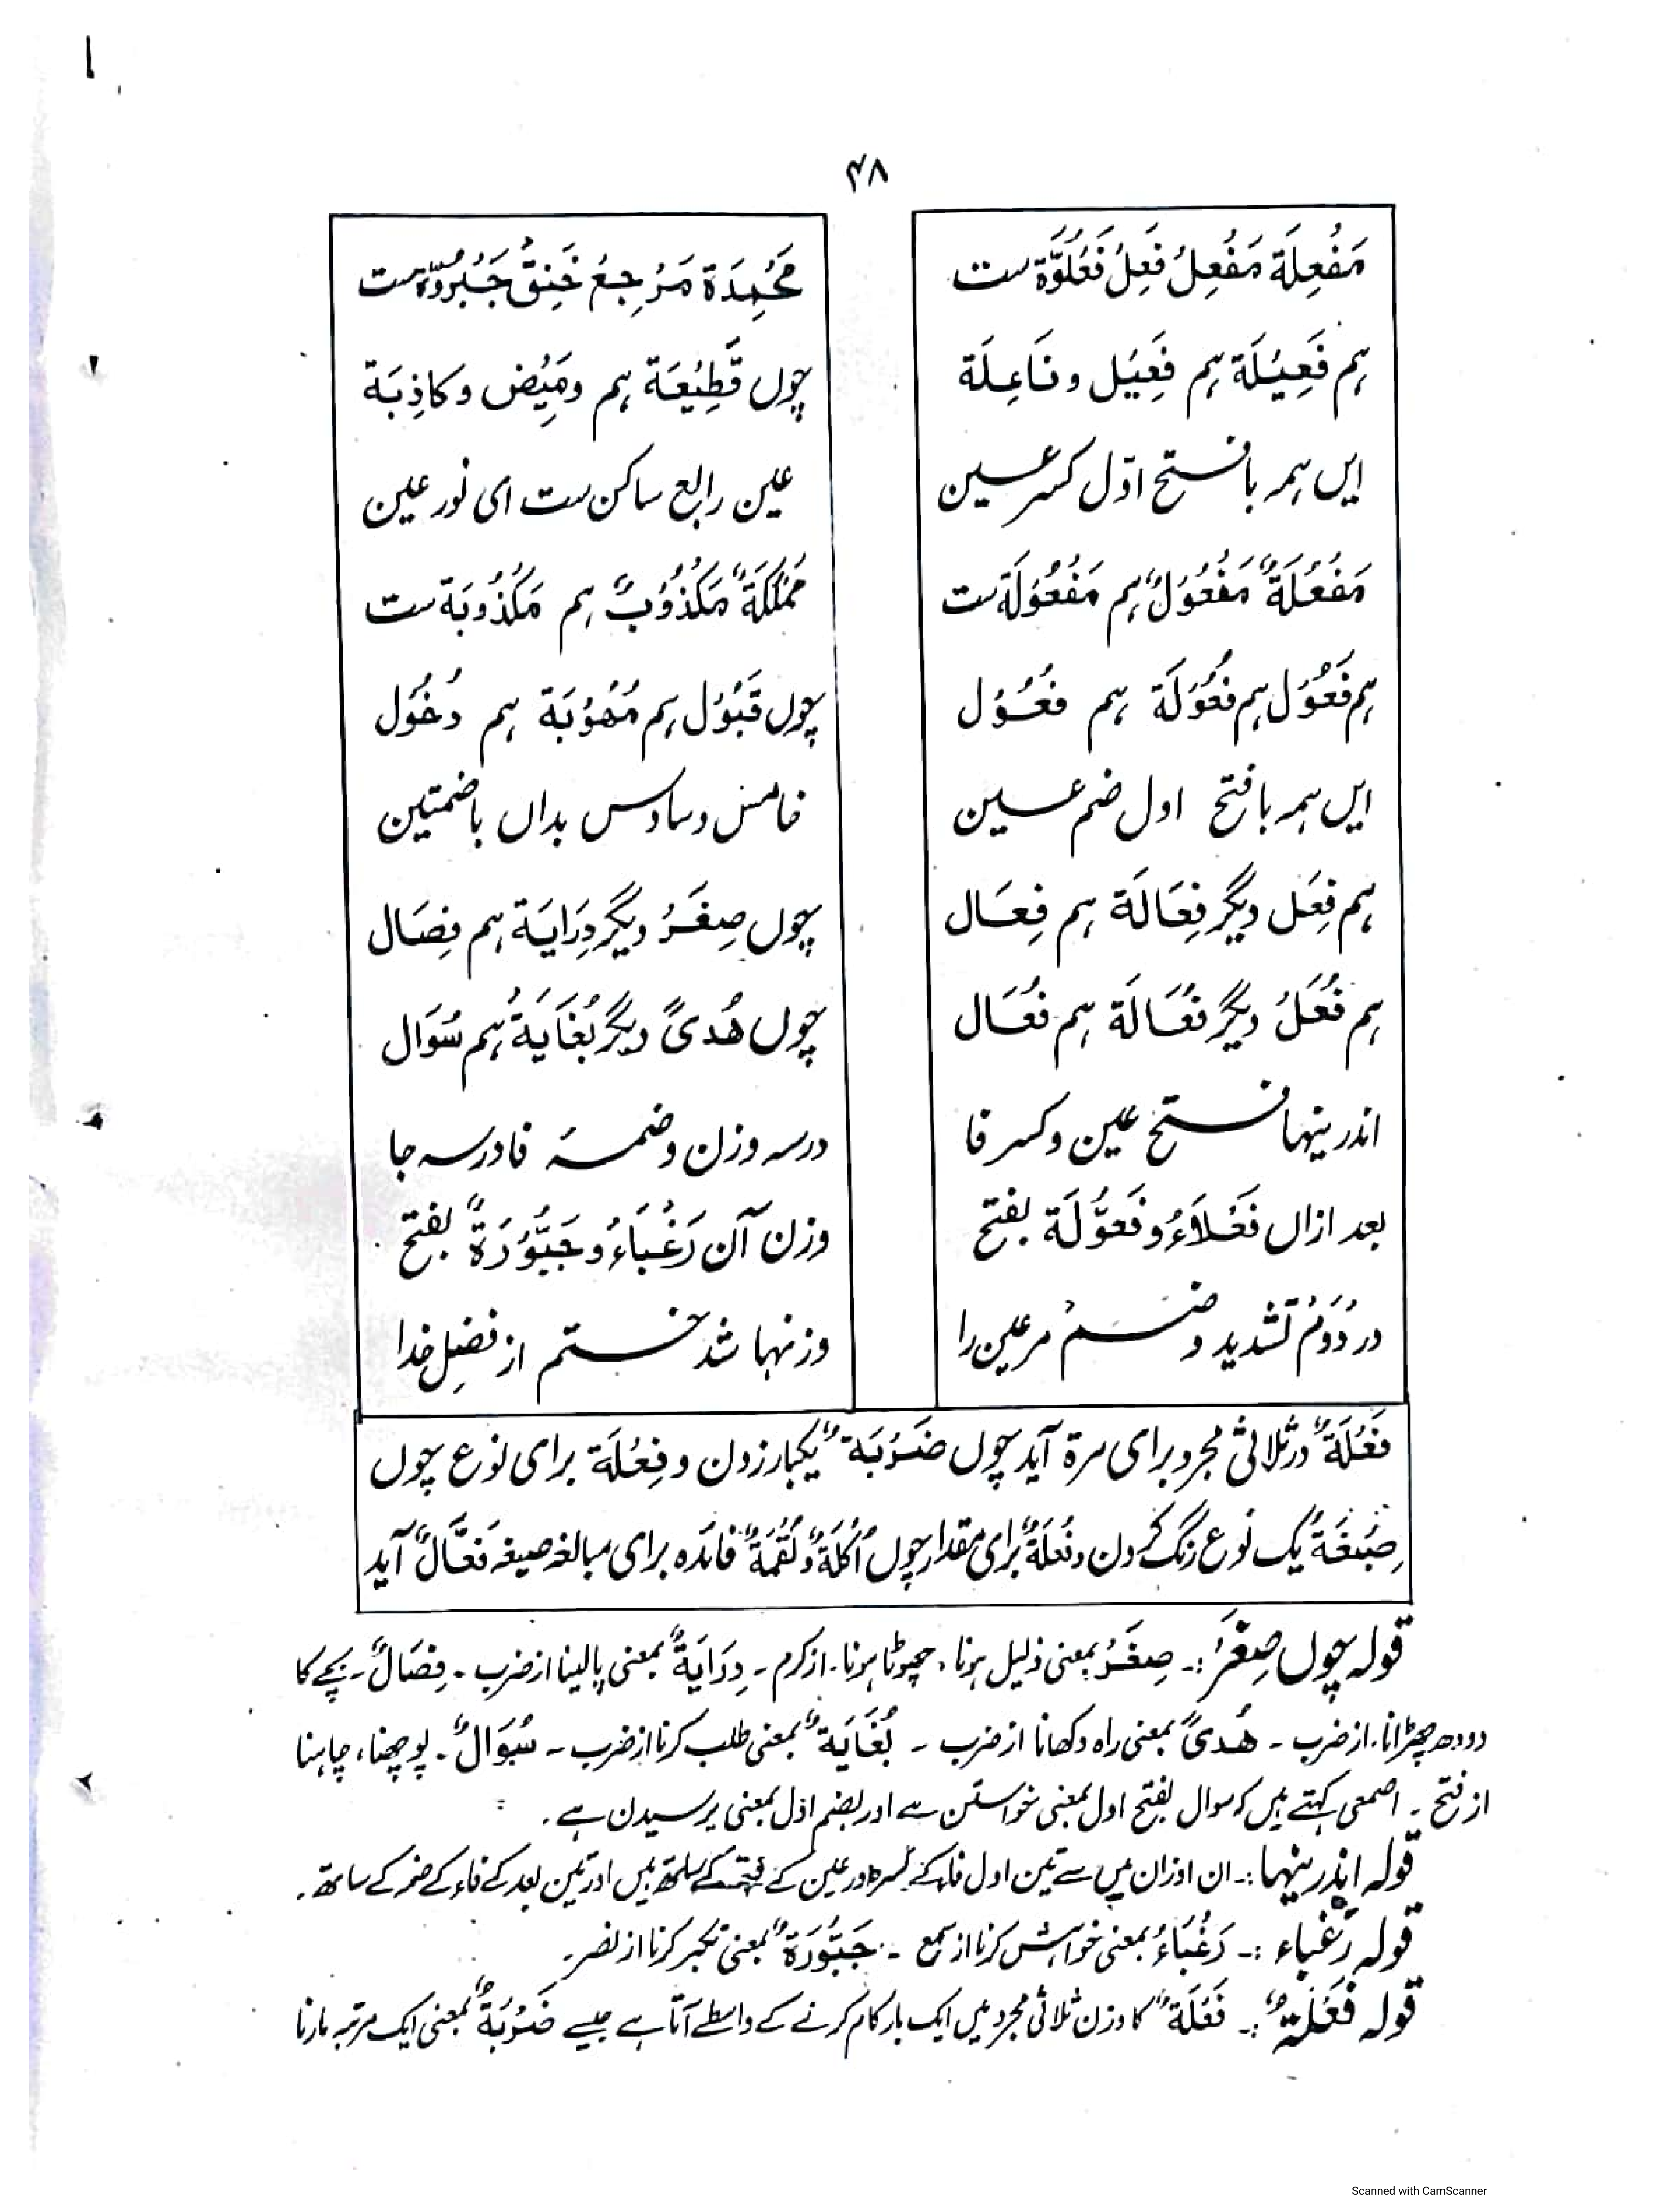 ۴۸
مَفْعِلَة مَفْعِلُ فَعِلُ فَعْلُوَّة ست
مَحْمِدَة مَرْجِعُ خَنِقُ جَبْرُوَّة ست
ہم فَعِیْلَة ہم فَعِیْل و فَاعِلَة
چوں قَطِیْعَة ہم ومَیِْض و کاذِبَة
ایں ہمہ با فتح اوّل کسر عین
عین رابع ساکن ست ای نور عین
مَفْعُلَةٌ مَفْعُوْلٌ ہم مَفْعُوْلَة ست
مَمْلُكَةٌ مَكْذُوْبٌ ہم مَكْذُوْبَة ست
ہم فَعُوْل ہم فُعُوْلَة ہم فُعُوْل
چوں قَبُوْل ہم صُهُوْبَة ہم دُخُوْل
ایں ہمہ با فتح اول ضم عین
خامس و سادس بداں با ضمتین
ہم فِعَل دیگر فِعَالَة ہم فِعَال
چوں صِغَرُ دیگر دِرَایَة ہم فِصَال
ہم فُعَلُ دیگر فُعَالَة ہم فُعَال
چوں هُدىً دیگر بُغَایَةُ ہم سُوَال
اندرینہا فتح عین و کسر فا
در سہ وزن و ضمۂ فا در سہ جا
بعد ازاں فَعْلَاءُ و فَعُّوْلَة بفتح
وزن آن رَغْبَاءُ و جَبُّوْرَةٌ بفتح
در دُوَمُ تشدید و ضم مر عین را
وزنہا شد ختم از فضلِ خدا
فَعْلَةٌ در ثلاثی مجرد برای مرۃ آید چوں ضَرْبَةٌ یکبار زدن و فِعْلَة برای نوع چوں
صِبْغَةُ یک نوع رنگ کردن و فُعْلَةٌ برای مقدار چوں اُكْلَةٌ وَ لُقْمَةٌ فائدہ برای مبالغہ صیغہ فَعَّالٌ آید
قولہ چوں صِغَرُ :۔ صِغَرُ بمعنی ذلیل ہونا، چھوٹا ہونا۔ از کرم ۔ دِرَایَةٌ بمعنی پالینا از ضرب ۔ فِصَالٌ ۔ بچے کا
دودھ چھڑانا، از ضرب ۔ هُدىً بمعنی راہ دکھانا از ضرب ۔ بُغَایَةٌ بمعنی طلب کرنا از ضرب ۔ سُوَالٌ ۔ پوچھنا، چاہنا
از فتح ۔ اصمعی کہتے ہیں کہ سوال بفتح اول بمعنی خواستن ہے اور بضم اوّل بمعنی پرسیدن ہے ۔
قولہ اندرینہا :۔ ان اوزان میں سے تین اول فا کے کسرہ اور عین کے فتحہ کے ساتھ ہیں اور تین بعد کے فاء کے ضمہ کے ساتھ ۔
قولہ رَغْباء :۔ رَغْبَاءُ بمعنی خواہش کرنا از سمع ۔ جَبُّوْرَةٌ بمعنی تکبر کرنا از نصر ۔
قولہ فَعْلَةٌ :۔ فَعْلَةٌ کا وزن ثلاثی مجرد میں ایک بار کام کرنے کے واسطے آتا ہے جیسے ضَرْبَةٌ بمعنی ایک مرتبہ مارنا
Scanned with CamScanner